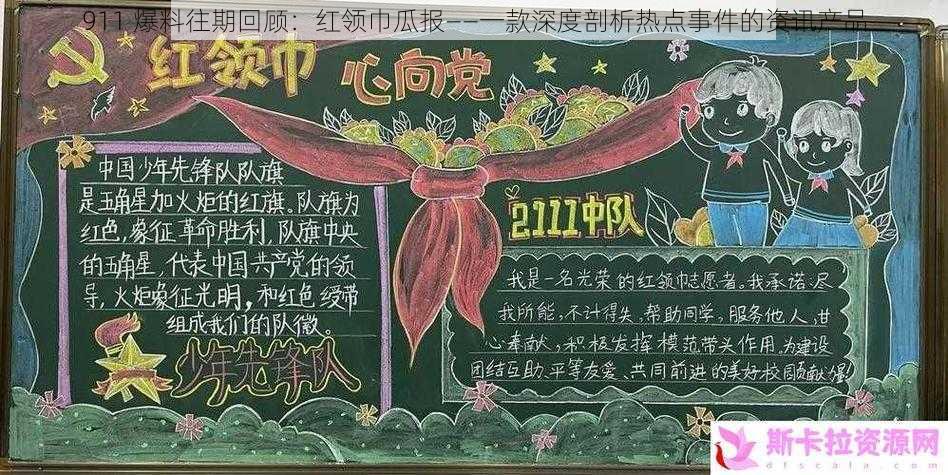 911 爆料往期回顾：红领巾瓜报——一款深度剖析热点事件的资讯产品
红领巾 心向党
中国少年先锋队队旗
是五角星加火炬的红旗。队旗为
红色,象征革命胜利,队旗中央
的五角星,代表中国共产党的领
导,火炬象征光明,和红色绶带
组成我们的队徽。
少年先锋队
2111中队
我是一名光荣的红领巾志愿者。我承诺:尽
我所能,不计得失,帮助同学,服务他人,甘
心奉献,积极发挥模范带头作用。为建设
团结互助、平等友爱、共同前进的美好校园贡献
斯卡拉资源网
dfscala.com